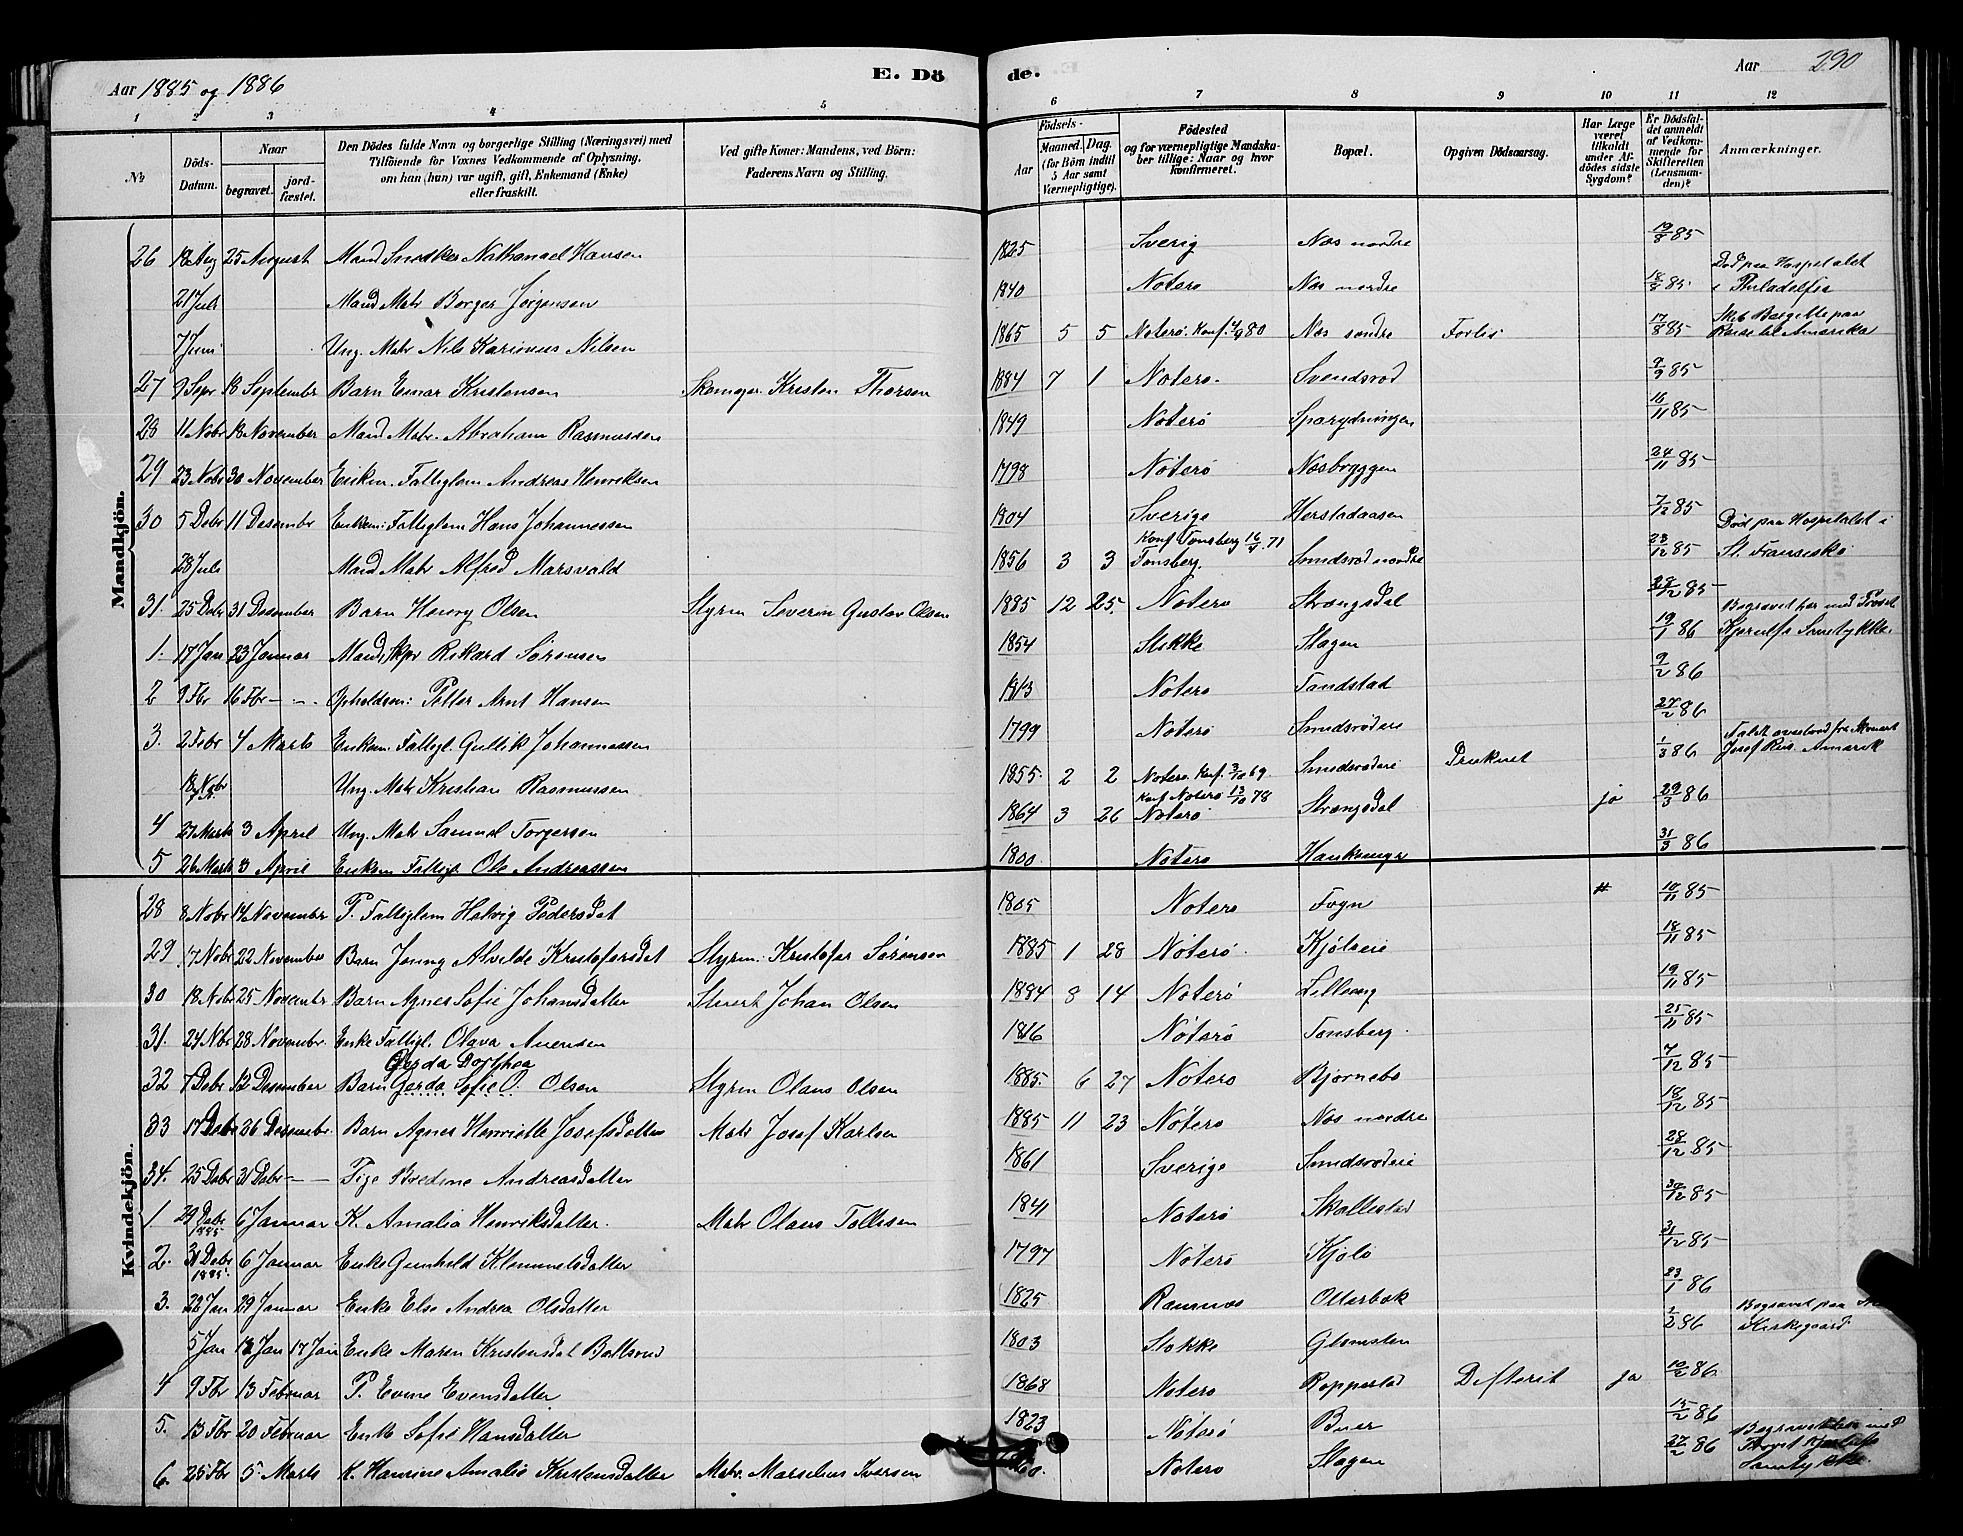 Aar 1885 og 1886 E. Dö de. Aar 290
1 2 3 4 5 6 7 8 9 10 11 12
№ Döds-Datum. Naar begravet. jordfæstet. Den Dödes fulde Navn og borgerlige Stilling (Næringsvei) med Tilföiende for Voxnes Vedkommende af Oplysning, om han (hun) var ugift, gift, Enkemand (Enke) eller fraskilt. Ved gifte Koner: Mandens, ved Börn: Faderens Navn og Stilling. Födsels- Aar Maaned. Dag. (for Börn indtil 5 Aar samt Værnepligtige). Födested og for værnepligtige Mandskaber tillige: Naar og hvor konfirmeret. Bopæl. Opgiven Dödsaarsag. Har Læge været tilkaldt under Afdödes sidste Sygdom? Er Dödsfaldet anmeldt af Vedkommende for Skifteretten (Lensmanden)? Anmærkninger.
Mandkjön.
26 18 Aug 25 August Mand Snedker Nathanael Hansen 1825 Sverig Nes nordre 19/8 85
21 Juli Mand Matr Borger Jørgensen 1840 Notero Nes nordre 18/8 85 Død paa Hospitalet i Philadelfia
7 Juni Ung. Matr Nils Karinius Nilsen 1865 5 5 Noterö. Konf. 4/9 80 Nes søndre Forlis 17/8 85 Reise til Amerika
27 9 Sepr 18 September Barn Einar Kristensen Skomager Kristen Thorsen 1884 7 1 Noterø. Svendsrod 9/9 85
28 11 Nobr 18 November Mand Matr. Abraham Rasmussen 1849 Noterö 16/11 85
29 23 Nobr 30 November Enkem. Fattiglem Andreas Henriksen 1798 Nøterö Nesbryggen 24/11 85
30 5 Debr 11 Desembr Enkem: Fattiglem Hans Johannessen 1804 Sverige Herstadaasen 7/12 85
28 Juli Mand Matr Alfred Marsvold 1856 3 3 Konf. Tønsberg 16/4 71 Tønsberg. Smidsrød nordre 23/12 85 Død paa Hospitalet i St. Fransisko
31. 25 Debr 31 Desember Barn Henry Olsen Styrm Severin Gustav Olsen 1885 12 25. Notero Strengsdal 28/12 85
1. 17 Jan 23 Januar Mand Skpr Rikard Sörensen 1854 Stokke Stagen 19/1 86 Begravet her med Provst Kjerulfs Samtykke.
2 9 Fbr 16 Fbr Opholdsm: Petter Arnt Hansen 1813 Notero Tandstad 9/2 86
3. 2 Febr 4 Marts Enkem. Fattigl. Gullik Johannessen 1799 Noterö Smidsrödeie 27/2 86
18 Nobr Ung. Matr Kristian Rasmussen 1855. 2 2 Notero. Konf. 3/10 69 Smidsrødeie Druknet 1/3 86 Faldt overbord fra
4 27 Marts 3 April Ung. Matr Samuel Torgersen 1864 3 26 Konf Noterö 13/10 78 Noterö Strengsdal ja 29/3 86
5 26 Marts 3 April Enkem Fattigl. Ole Andreassen 1800. Notero 31/3 86
Kvindekjön.
28 8 Nobr 14 November P. Fattiglem Helvig Pedersdat 1805 Notero Fogn # 10/11 85
29 17 Nobr 22 November Barn Jenny Alvilde Kristofersdat Styrm. Kristofer Sörensen 1885 1 28 Nöterö. Kjöleie 18/11 85
30 18 Nobr 25 November Barn Agnes Sofie Johansdatter Stuert Johan Olsen 1884 8 14 Nöterö 19/11 85
31. 24 Nbr 28 Novembr. Enke Fattigl. Olava Auensen 1816 Nöterö Tønsberg. 25/11 85
Gerda Dorthea
32 7 Debr 12 Desember Barn Gerda Sofie O. Olsen Styrm Olaus Olsen 1885. 6 27 Nöterö Bjørnebo 7/12 85
33 17 Debr 26 Desembr. Barn Agnes Henriette Josefsdatter Matr Josef Karlsen 1885 11 23 Nöterö Nes nordre 18/12 85
34. 25 Debr 31 Debr Pige Bredine Andreasdatter 1861 Sverige Smidsrødeie 28/12 85
1 29 Debr 1885 6 Januar K. Amalia Henriksdatter. Matr Olaus Tollefsen 1841 Noterö Skallestad 30/12 85
2. 31 Debr 1885. 6 Januar Enke Gunhild Klemmetsdatter 1797 Nöterö Kjölö 31/12 85
3. 22 Jan 29 Januar Enke Else Andrea Olsdatter 1825 Ramnes Ollerbek 23/1 86
5 Jan 12 Jan 17 Jan Enke Maren Kristensdat Boltsrud 1803 Stokke Glomsten 1/2 86 Begravet paa Kirkegaard
4 9 Fbr 13 Februar P. Evine Evensdatter 1868 Notero Ropperstad Difterit ja 10/2 86
5. 13 Fbr 20 Februar Enke Sofie Hansdatter 1823 Nöterö Buer 15/2 86
6. 25 Fbr 5 Marts K. Hanrine Amalie Kristensdatter Matr. Marselius Iversen Notero Stagen 27/2 86 Begravet her med Provst Kjerulfs Samtykke